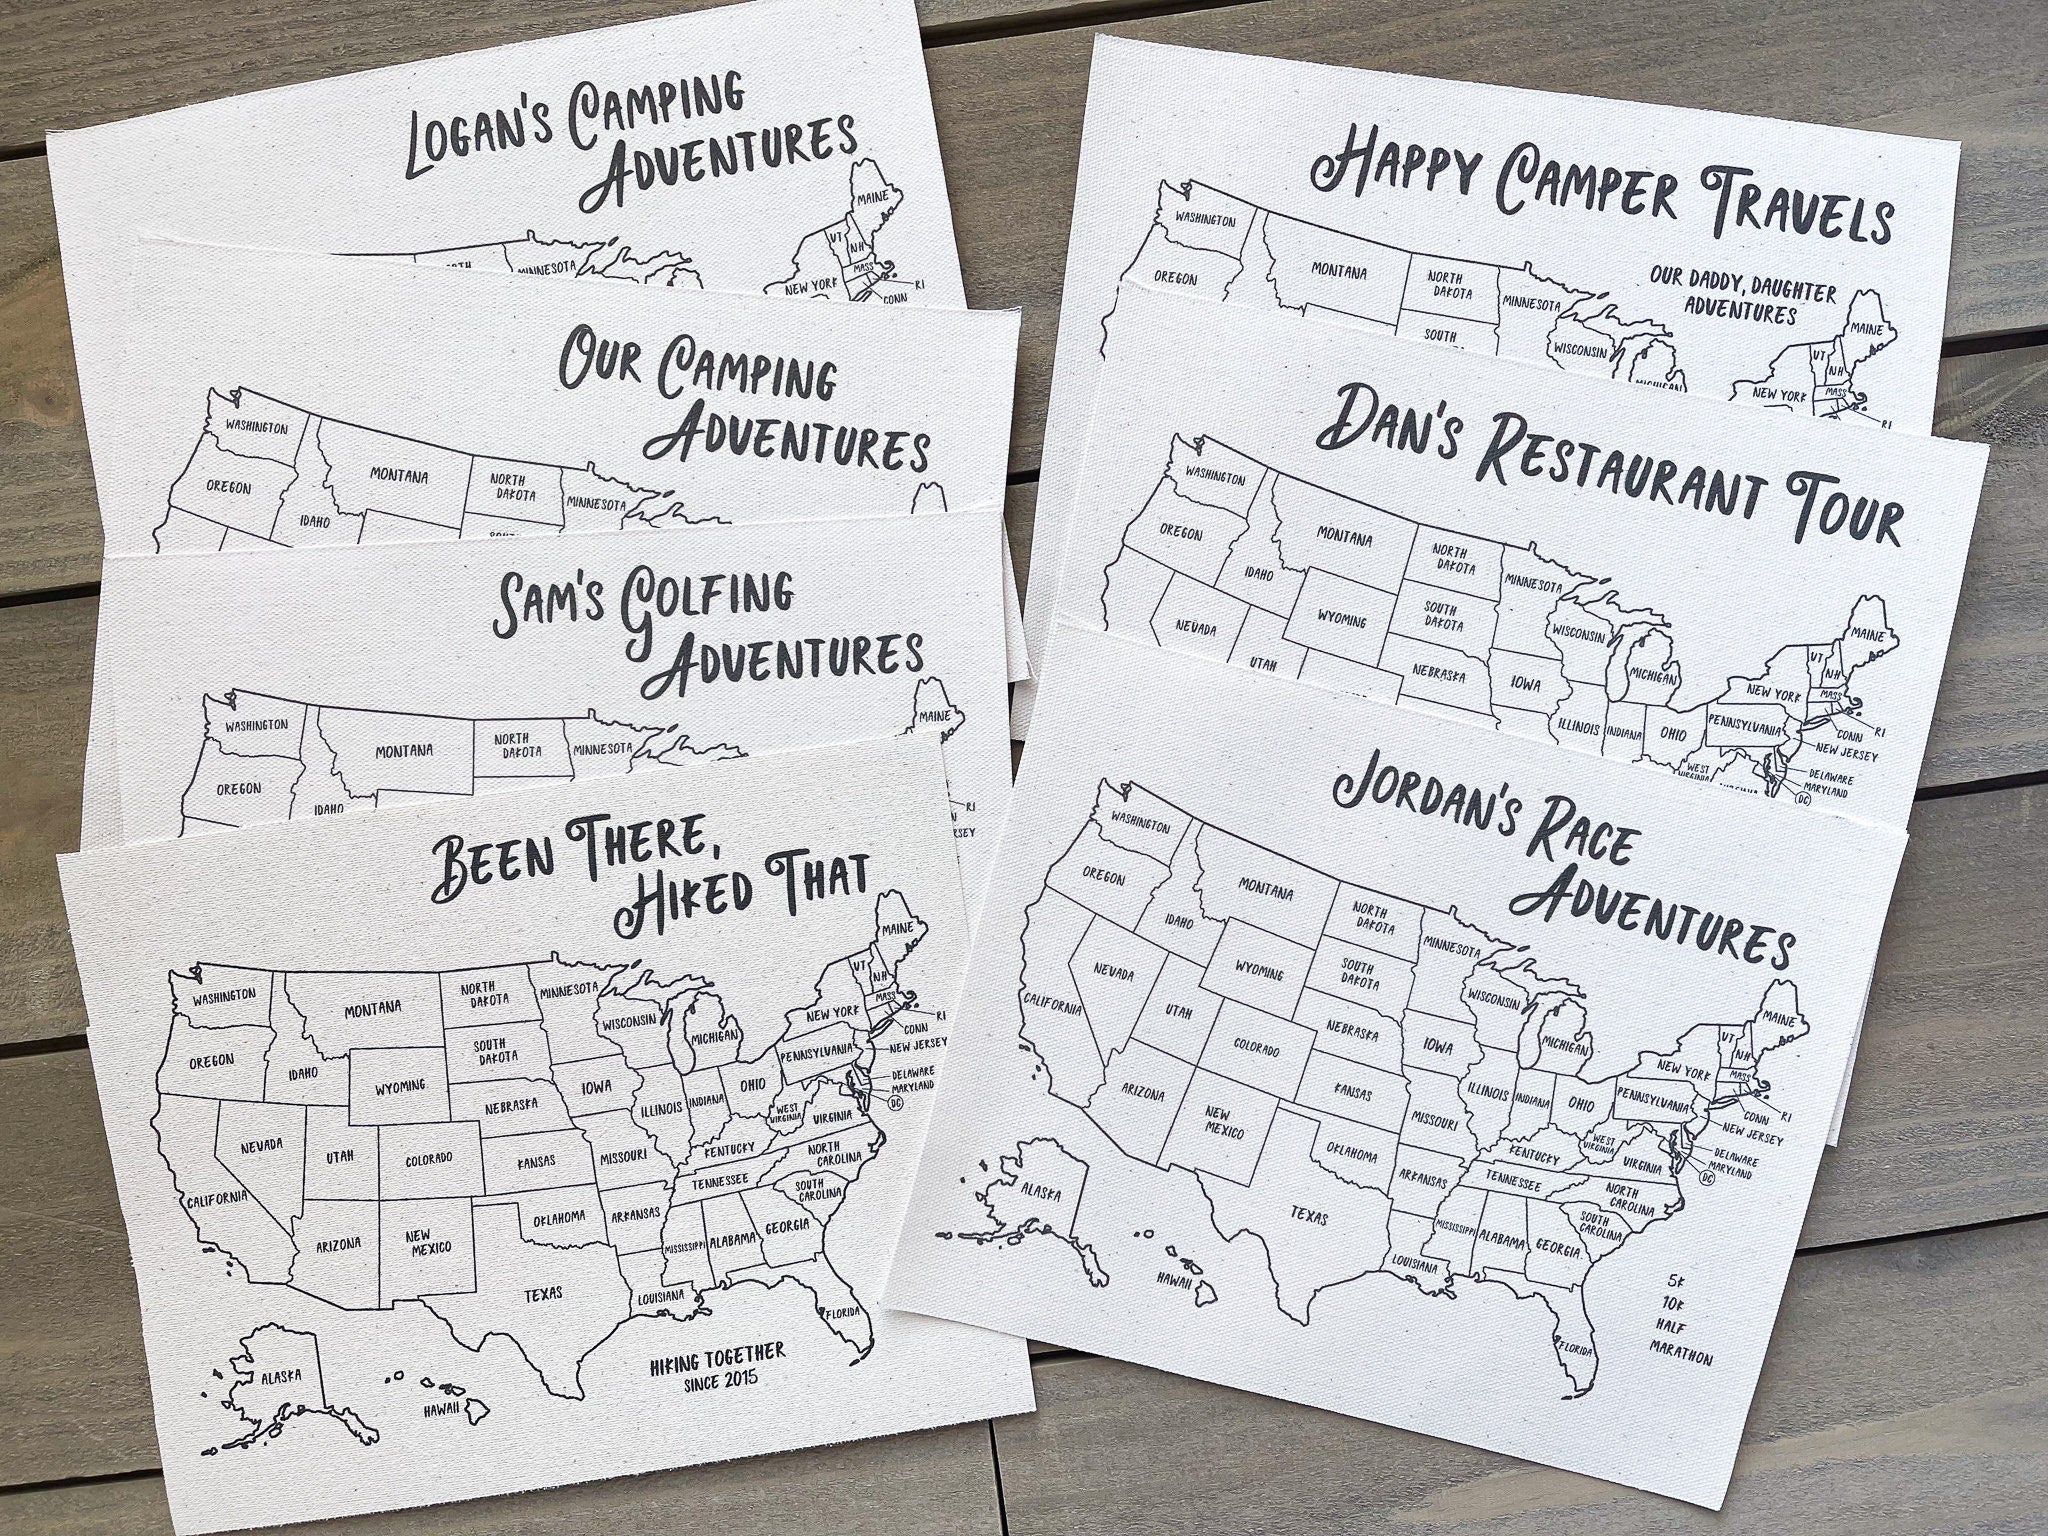 Logan's Camping
Adventures
MAINE
VT
NH
MINNESOTA
MASS
NEW YORK
RI
CONN
Our Camping
Adventures
WASHINGTON
MONTANA
NORTH
DAKOTA
OREGON
MINNESOTA
IDAHO
Sam's Golfing
Adventures
MAINE
WASHINGTON
MONTANA
NORTH
DAKOTA
MINNESOTA
OREGON
IDAHO
RI
Been There,
Hiked That
MAINE
VT
NH
WASHINGTON
MONTANA
NORTH
DAKOTA
MINNESOTA
MASS
NEW YORK
RI
WISCONSIN
CONN
MICHIGAN
NEW JERSEY
OREGON
IDAHO
SOUTH
DAKOTA
PENNSYLVANIA
WYOMING
IOWA
OHIO
DELAWARE
MARYLAND
DC
NEBRASKA
ILLINOIS
INDIANA
WEST
VIRGINIA
VIRGINIA
NEVADA
UTAH
COLORADO
KANSAS
MISSOURI
KENTUCKY
NORTH
CAROLINA
CALIFORNIA
TENNESSEE
SOUTH
CAROLINA
ARIZONA
NEW
MEXICO
OKLAHOMA
ARKANSAS
MISSISSIPPI
ALABAMA
GEORGIA
TEXAS
LOUISIANA
FLORIDA
ALASKA
HAWAII
HIKING TOGETHER
SINCE 2015
Happy Camper Travels
OUR DADDY, DAUGHTER
ADVENTURES
WASHINGTON
OREGON
MONTANA
NORTH
DAKOTA
MINNESOTA
SOUTH
WISCONSIN
MICHIGAN
MAINE
VT
NH
NEW YORK
MASS
RI
Dan's Restaurant Tour
WASHINGTON
OREGON
MONTANA
NORTH
DAKOTA
MINNESOTA
IDAHO
WYOMING
SOUTH
DAKOTA
WISCONSIN
MICHIGAN
MAINE
VT
NH
NEVADA
UTAH
NEBRASKA
IOWA
NEW YORK
MASS
RI
CONN
ILLINOIS
INDIANA
OHIO
PENNSYLVANIA
NEW JERSEY
WEST
VIRGINIA
DELAWARE
MARYLAND
DC
Jordan's Race
Adventures
WASHINGTON
OREGON
MONTANA
NORTH
DAKOTA
MINNESOTA
IDAHO
WYOMING
SOUTH
DAKOTA
WISCONSIN
MICHIGAN
MAINE
VT
NH
NEVADA
CALIFORNIA
UTAH
COLORADO
NEBRASKA
IOWA
NEW YORK
MASS
RI
CONN
NEW JERSEY
ARIZONA
NEW
MEXICO
KANSAS
MISSOURI
ILLINOIS
INDIANA
OHIO
PENNSYLVANIA
WEST
VIRGINIA
VIRGINIA
DELAWARE
MARYLAND
DC
OKLAHOMA
ARKANSAS
KENTUCKY
TENNESSEE
NORTH
CAROLINA
SOUTH
CAROLINA
ALASKA
TEXAS
MISSISSIPPI
ALABAMA
GEORGIA
LOUISIANA
HAWAII
FLORIDA
5K
10K
HALF
MARATHON